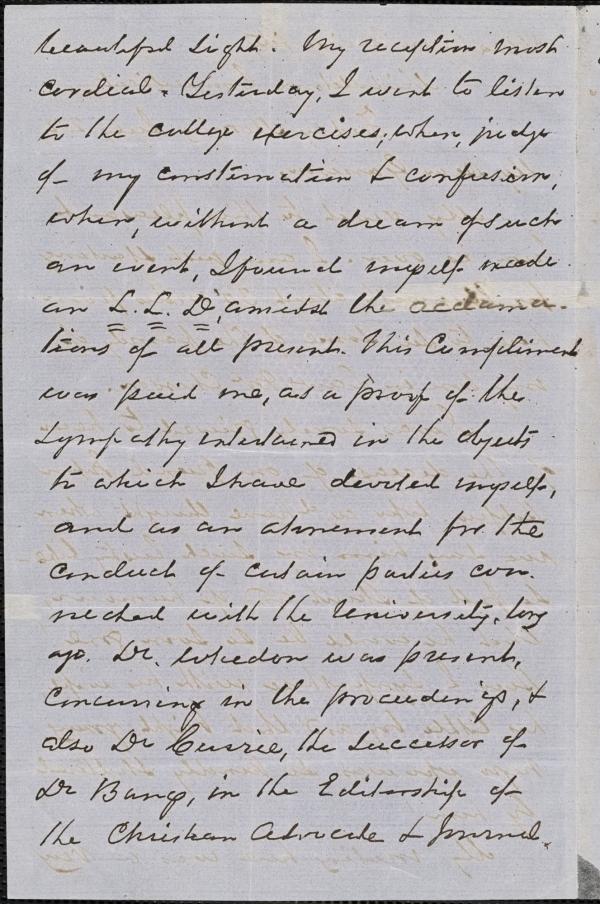 beautiful light. My reception most
cordial. Yesterday, I went to listen
to the college exercises, when, judge
of my consternation & confusion,
when, without a dream of such
an event, I found myself made
an L. L. D, amidst the acclama-
tions of all present. This Compliment
was paid me, as a proof of the
sympathy entertained in the objects
to which I have devoted myself,
and as an atonement for the
conduct of certain parties con-
nected with the University, long
ago. Dr. Whedon was present,
concurring in the proceedings, &
also Dr Currie, the successor of
Dr Bangs, in the Editorship of
the Christian Advocate & Journal.